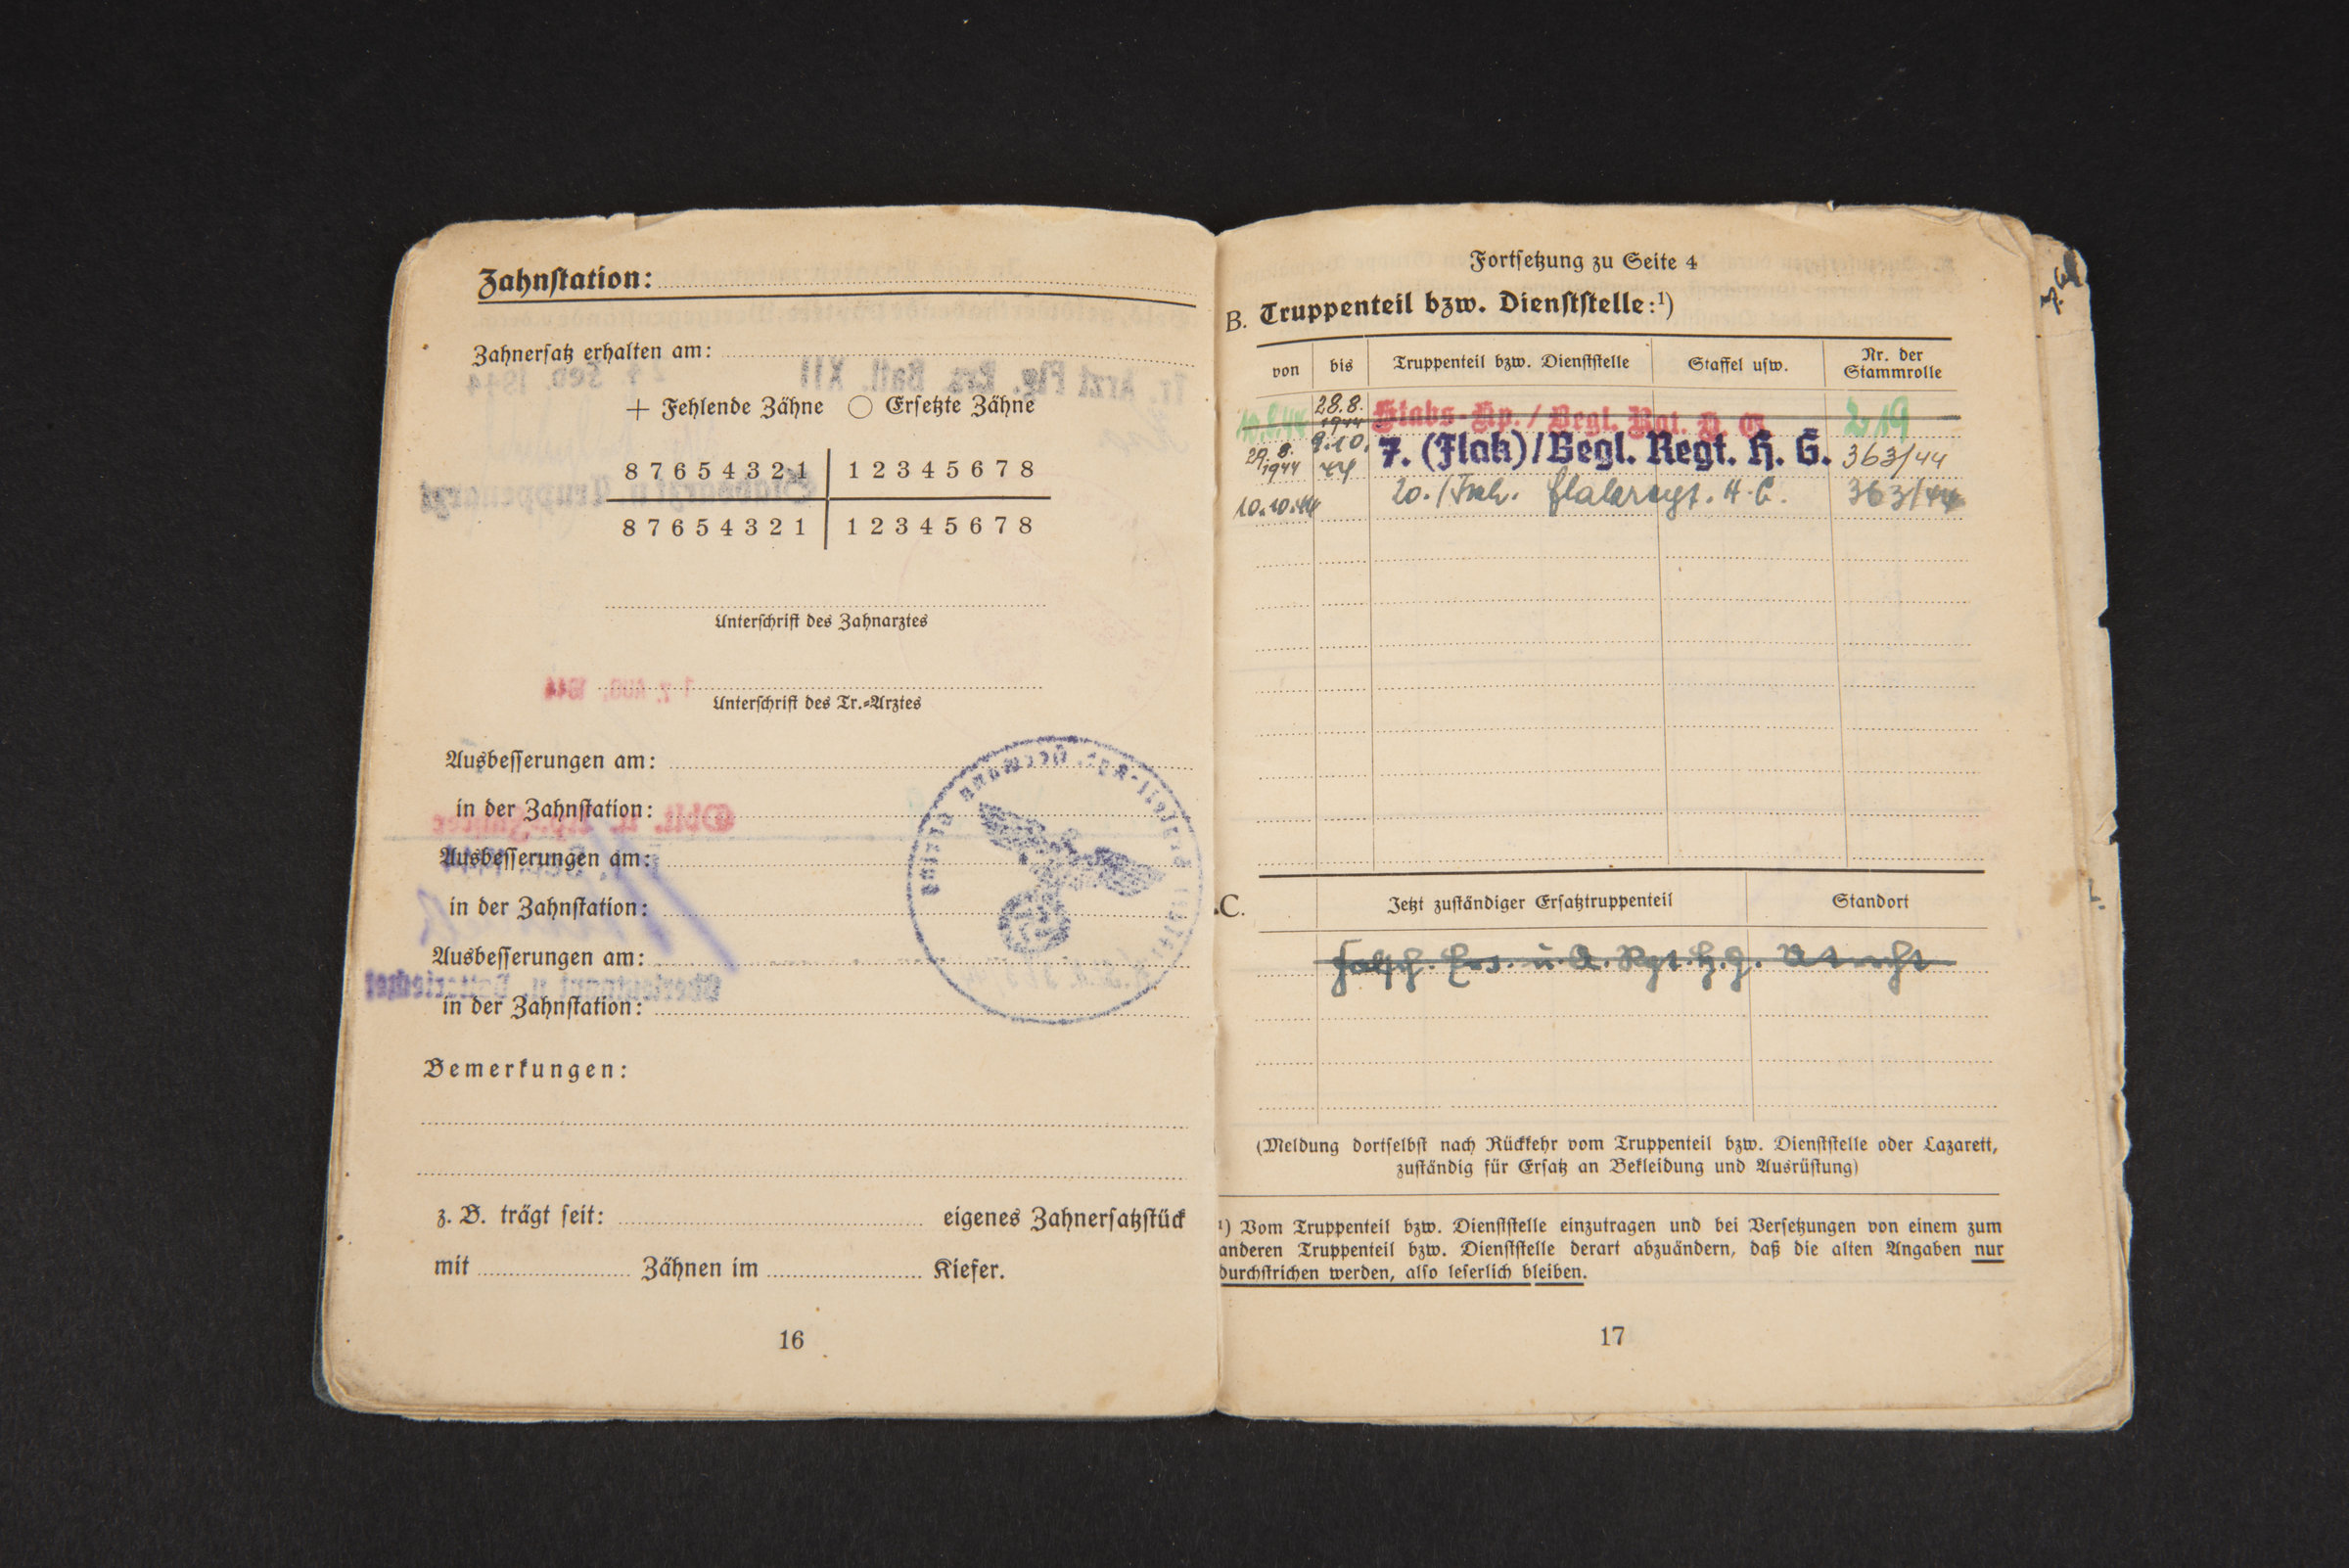 Zahnſtation:
Zahnerſatz erhalten am:
+ Fehlende Zähne ○ Erſetzte Zähne
8 7 6 5 4 3 2 1 | 1 2 3 4 5 6 7 8
8 7 6 5 4 3 2 1 | 1 2 3 4 5 6 7 8
Unterſchrift des Zahnarztes
Unterſchrift des Tr.-Arztes
Ausbeſſerungen am:
in der Zahnſtation:
Ausbeſſerungen am:
in der Zahnſtation:
Ausbeſſerungen am:
in der Zahnſtation:
Bemerkungen:
z. B. trägt ſeit: eigenes Zahnerſatzſtück
mit Zähnen im Kiefer.
16
Fortſetzung zu Seite 4
B. Truppenteil bzw. Dienſtſtelle:¹)
von bis Truppenteil bzw. Dienſtſtelle Staffel uſw. Nr. der Stammrolle
28.8. 1944 Stabs-Kp. / Begl. Rgt. H. G. 219
29.8. 1944 9.10. 44 7. (Flak)/Begl. Regt. H. G. 363/44
10.10.44 20./ Flakregt. H. G. 363/44
C. Jetzt zuſtändiger Erſatztruppenteil Standort
Ers. u. A. Rgt. H. G.
(Meldung dortſelbſt nach Rückkehr vom Truppenteil bzw. Dienſtſtelle oder Lazarett,
zuſtändig für Erſatz an Bekleidung und Ausrüſtung)
¹) Vom Truppenteil bzw. Dienſtſtelle einzutragen und bei Verſetzungen von einem zum
anderen Truppenteil bzw. Dienſtſtelle derart abzuändern, daß die alten Angaben nur
durchſtrichen werden, alſo leſerlich bleiben.
17